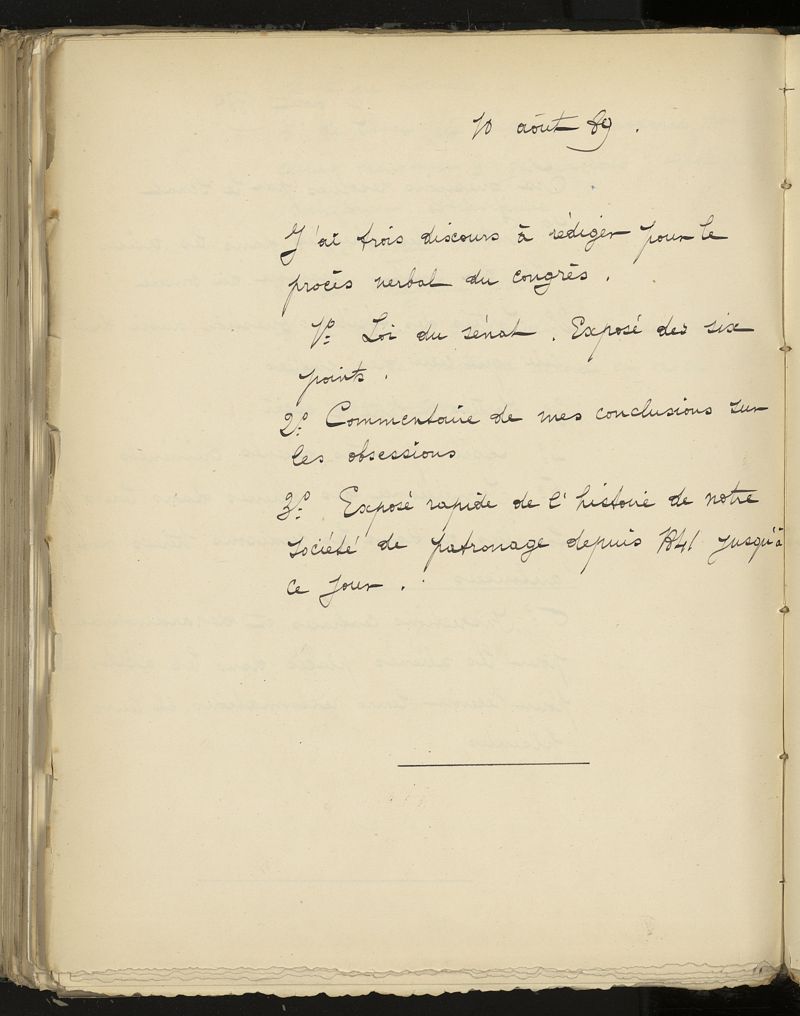 10 août 89.
J'ai trois discours à rédiger pour le
procès verbal du congrès.
1º Loi du sénat. Exposé des six
points.
2º Commentaire de mes conclusions sur
les obsessions
3º Exposé rapide de l'histoire de notre
société de patronage depuis 1841 jusqu'à
ce jour.